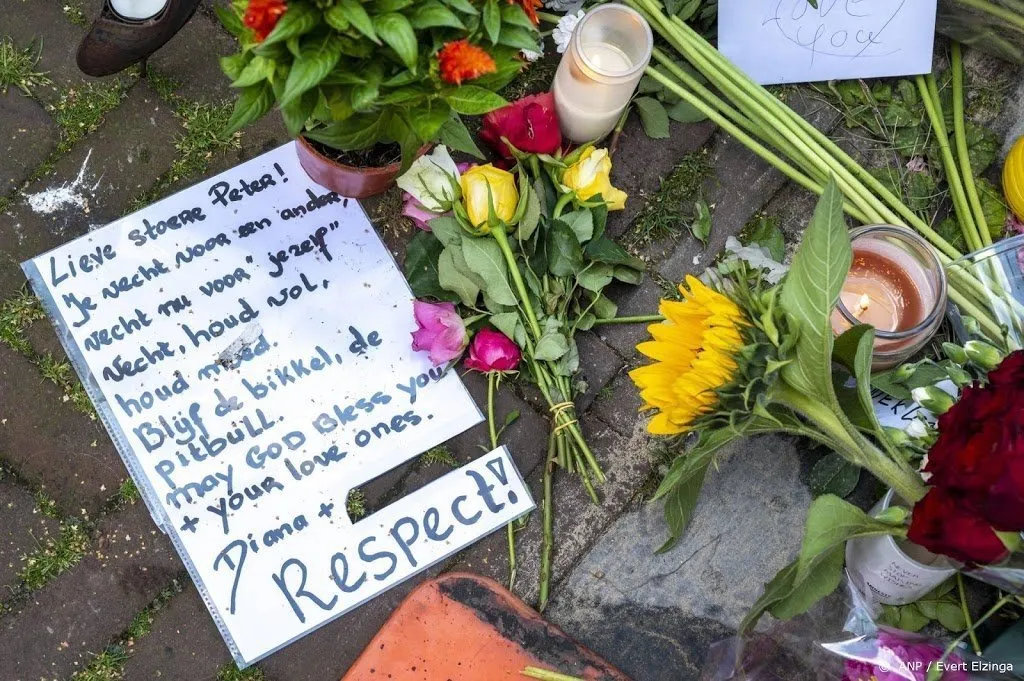 Lieve stoere Peter!
"Je vecht voor een ander,
vecht nu voor "jezelf"
Vecht, houd vol,
houd moed.
Blijf de bikkel, de
pitbull.
may GOD Bless you
+ your love ones.
Diana +
Respect!
Love
you
© ANP / Evert Elzinga